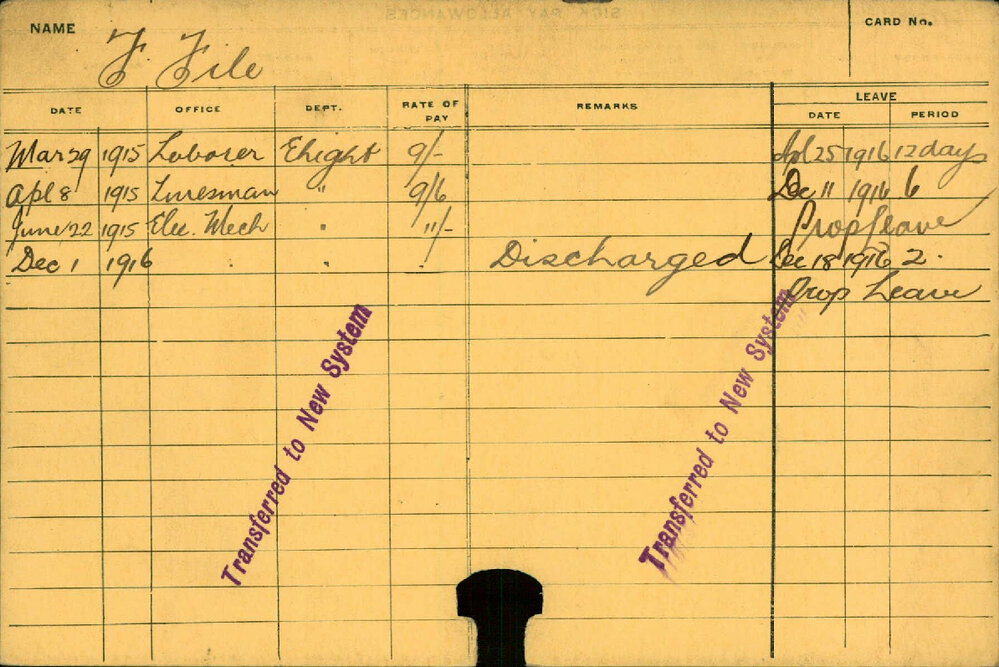 NAME F File CARD No.
DATE OFFICE DEPT. RATE OF PAY REMARKS LEAVE
DATE PERIOD
Mar 29 1915 Laborer Elight 9/- Apl 25 1916 12 days
Apl 8 1915 Linesman " 9/6 Dec 11 1916 6
June 22 1915 Elec. Mech " 11/- Prop Leave
Dec 1 1916 Discharged Dec 18 1916 2.
Prop Leave
Transferred to New System
Transferred to New System